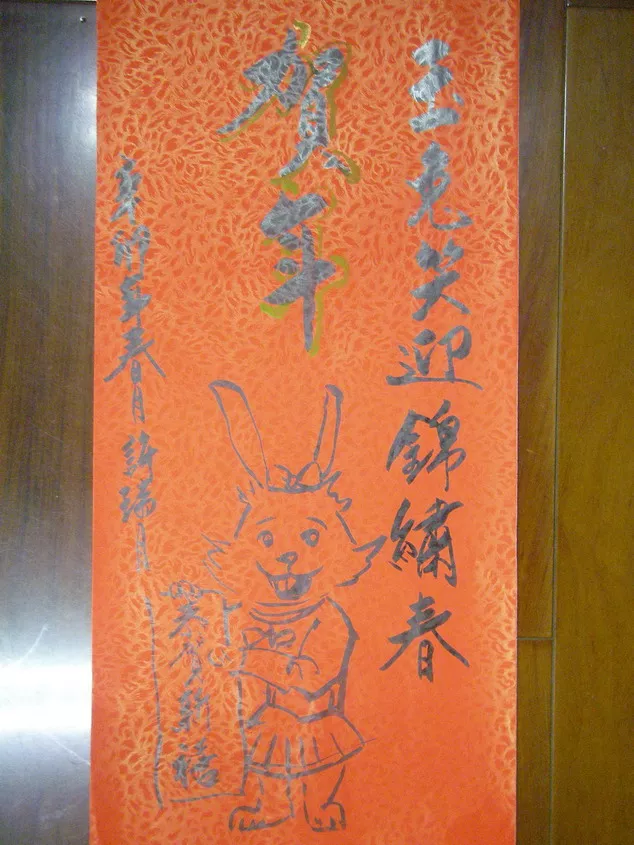 玉兔笑迎錦繡春
賀年
辛卯年春月許瑞月
賀新禧